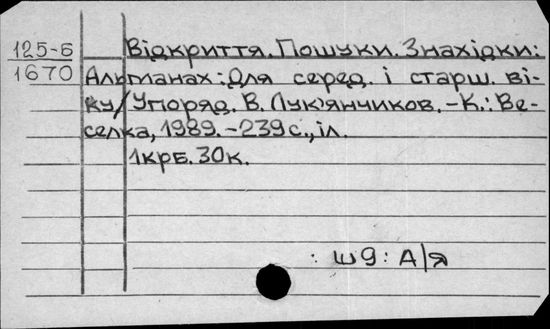 125-Б Відкриття. Пошуки. Знахідки:
1670 Альманах: Для серед. і старш. ві-
ку/Упоряд. В. Лук'янчиков. -К.: Ве-
селка, 1989. -239с., іл.
1крб. 30к.
: ш9: А/я